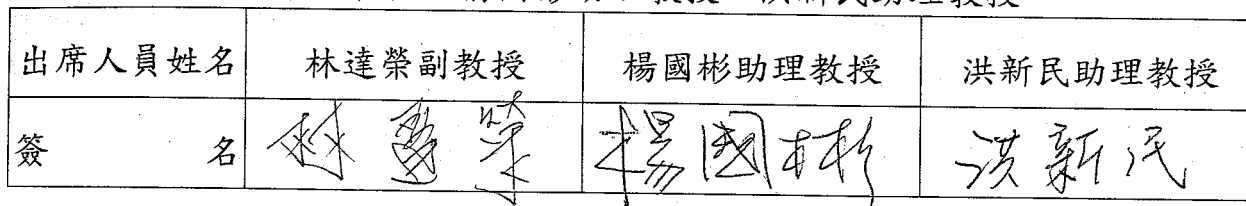 洪新民助理教授
出席人員姓名 林達榮副教授 楊國彬助理教授 洪新民助理教授
簽名 林達榮 楊國彬 洪新民